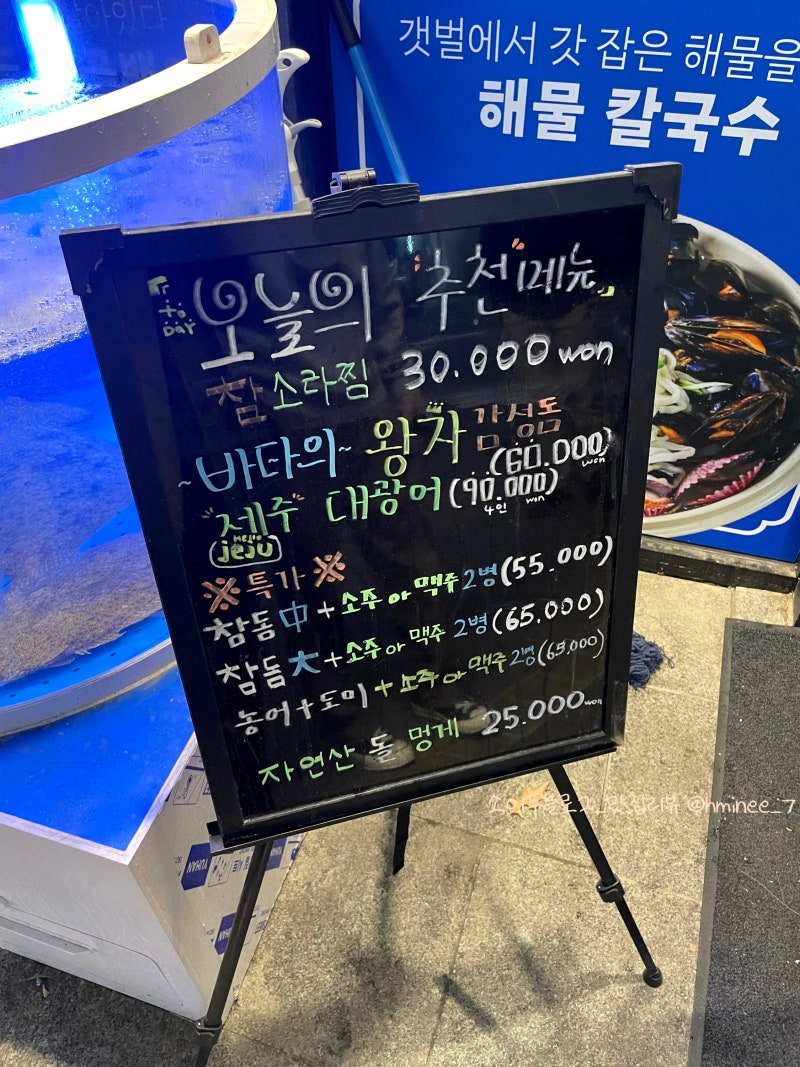 갯벌에서 갓 잡은 해물을
해물 칼국수
to
DAY
오늘의 "추천"메뉴
참 소라찜 30.000 won
~바다의~ 왕자 감성돔
(60.000)
won
"제주" 대광어(90.000)
4인 won
HELLO
jeju
※특가※
참돔中+소주 or 맥주2병(55.000)
참돔大+소주 or 맥주 2병(65.000)
농어+도미+소주 or 맥주2병(65.000)
자연산 돌 멍게 25.000won
YUHAN
@hminee_7